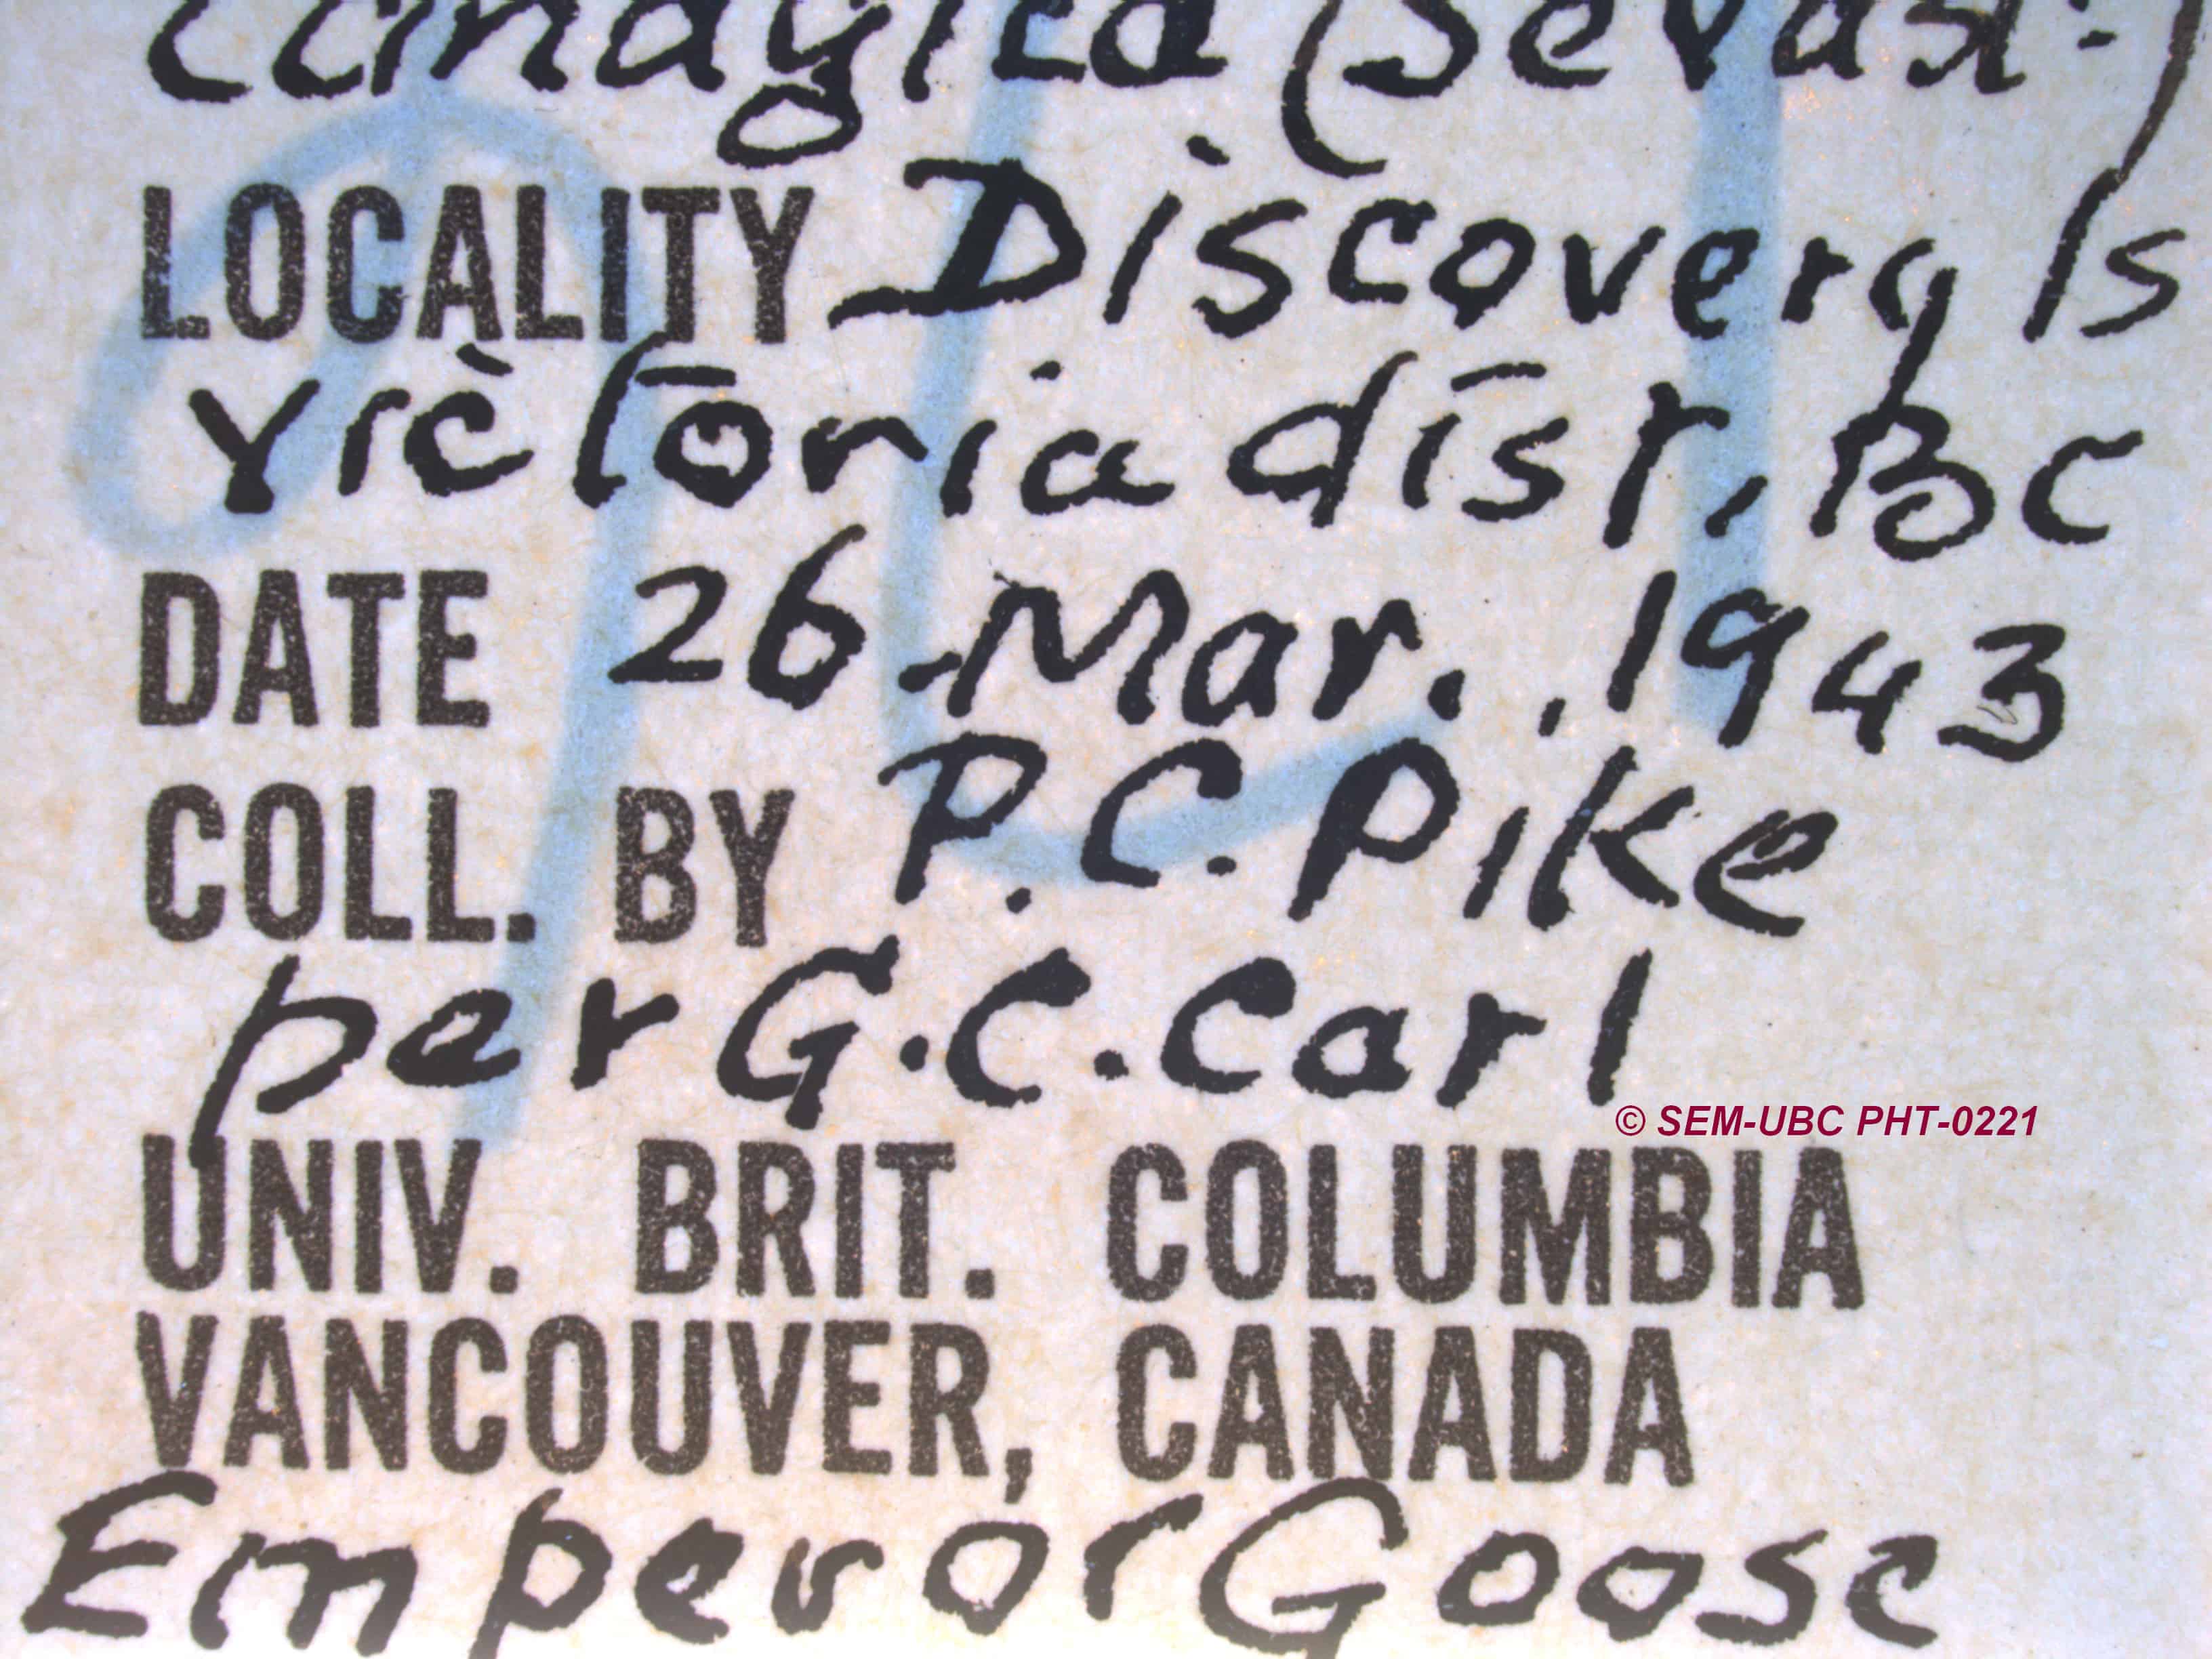 canagica (Sevast.)
LOCALITY Discovery Is
Victoria dist, BC
DATE 26 Mar. ,1943
COLL. BY P.C. Pike
per G.C. Carl
© SEM-UBC PHT-0221
UNIV. BRIT. COLUMBIA
VANCOUVER, CANADA
Emperor Goose